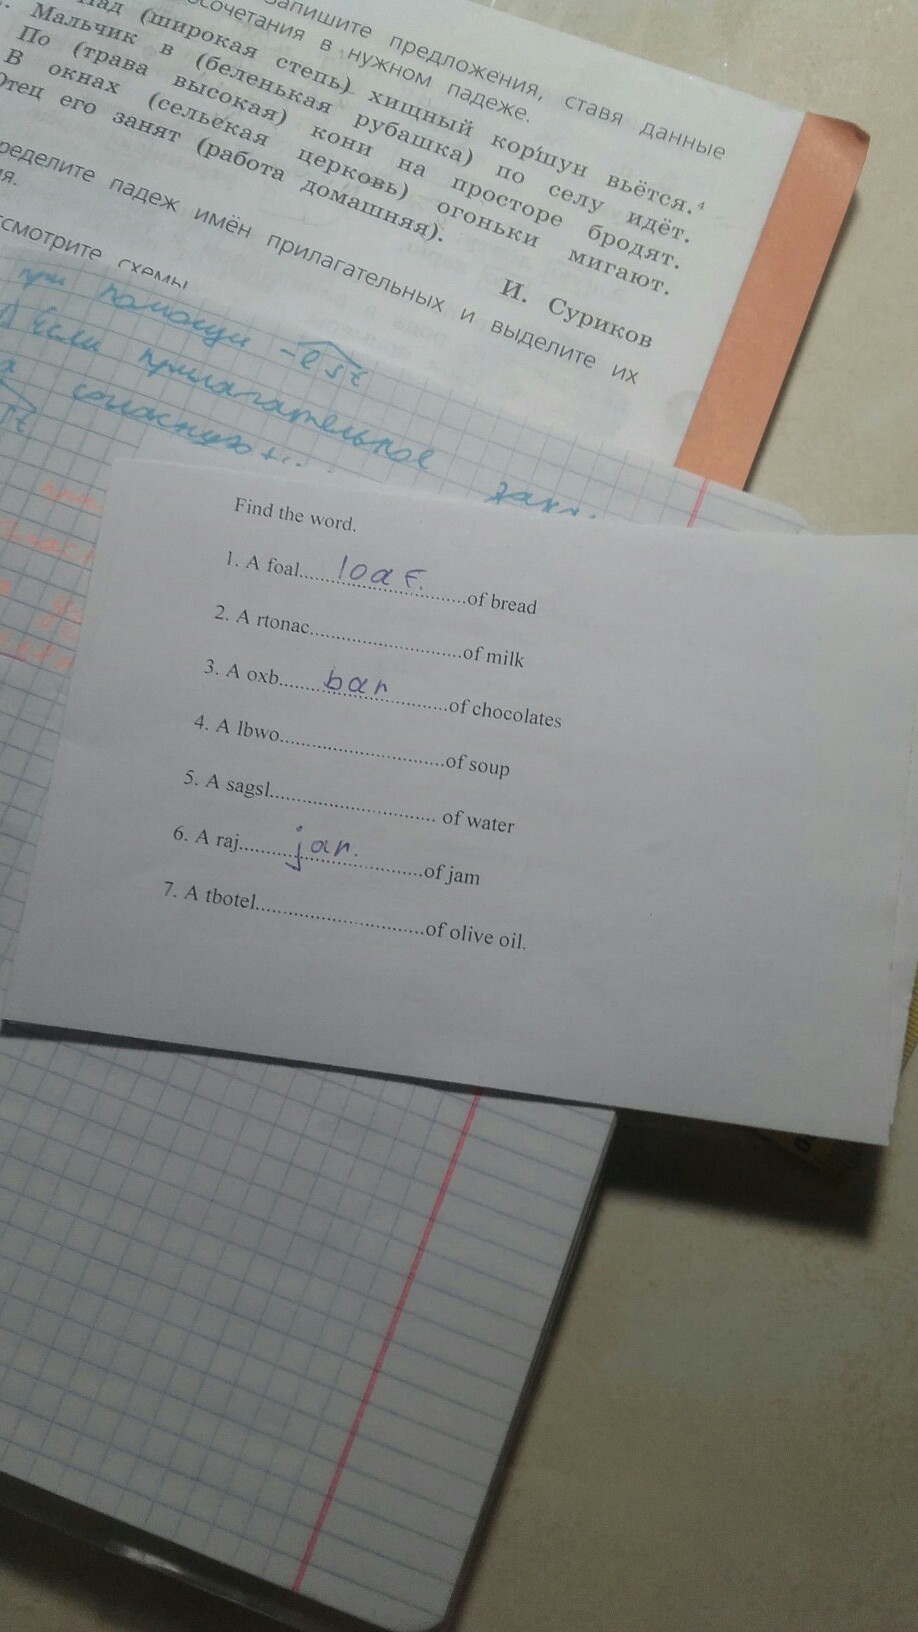 Запишите предложения, ставя данные
сочетания в нужном падеже.
Над (широкая степь) хищный коршун вьётся.⁴
Мальчик в (беленькая рубашка) по селу идёт.
По (трава высокая) кони на просторе бродят.
В окнах (сельская церковь) огоньки мигают.
Отец его занят (работа домашняя).
И. Суриков
ределите падеж имён прилагательных и выделите их
ия.
ссмотрите схемы
при помощи -est
Если прилагательное
согласную
Find the word.
1. A foal......loaf.........of bread
2. A rtonac..............................of milk
3. A oxb.........bar............of chocolates
4. A lbwo.................................of soup
5. A sagsl................................. of water
6. A raj..........jar...............of jam
7. A tbotel.................................of olive oil.